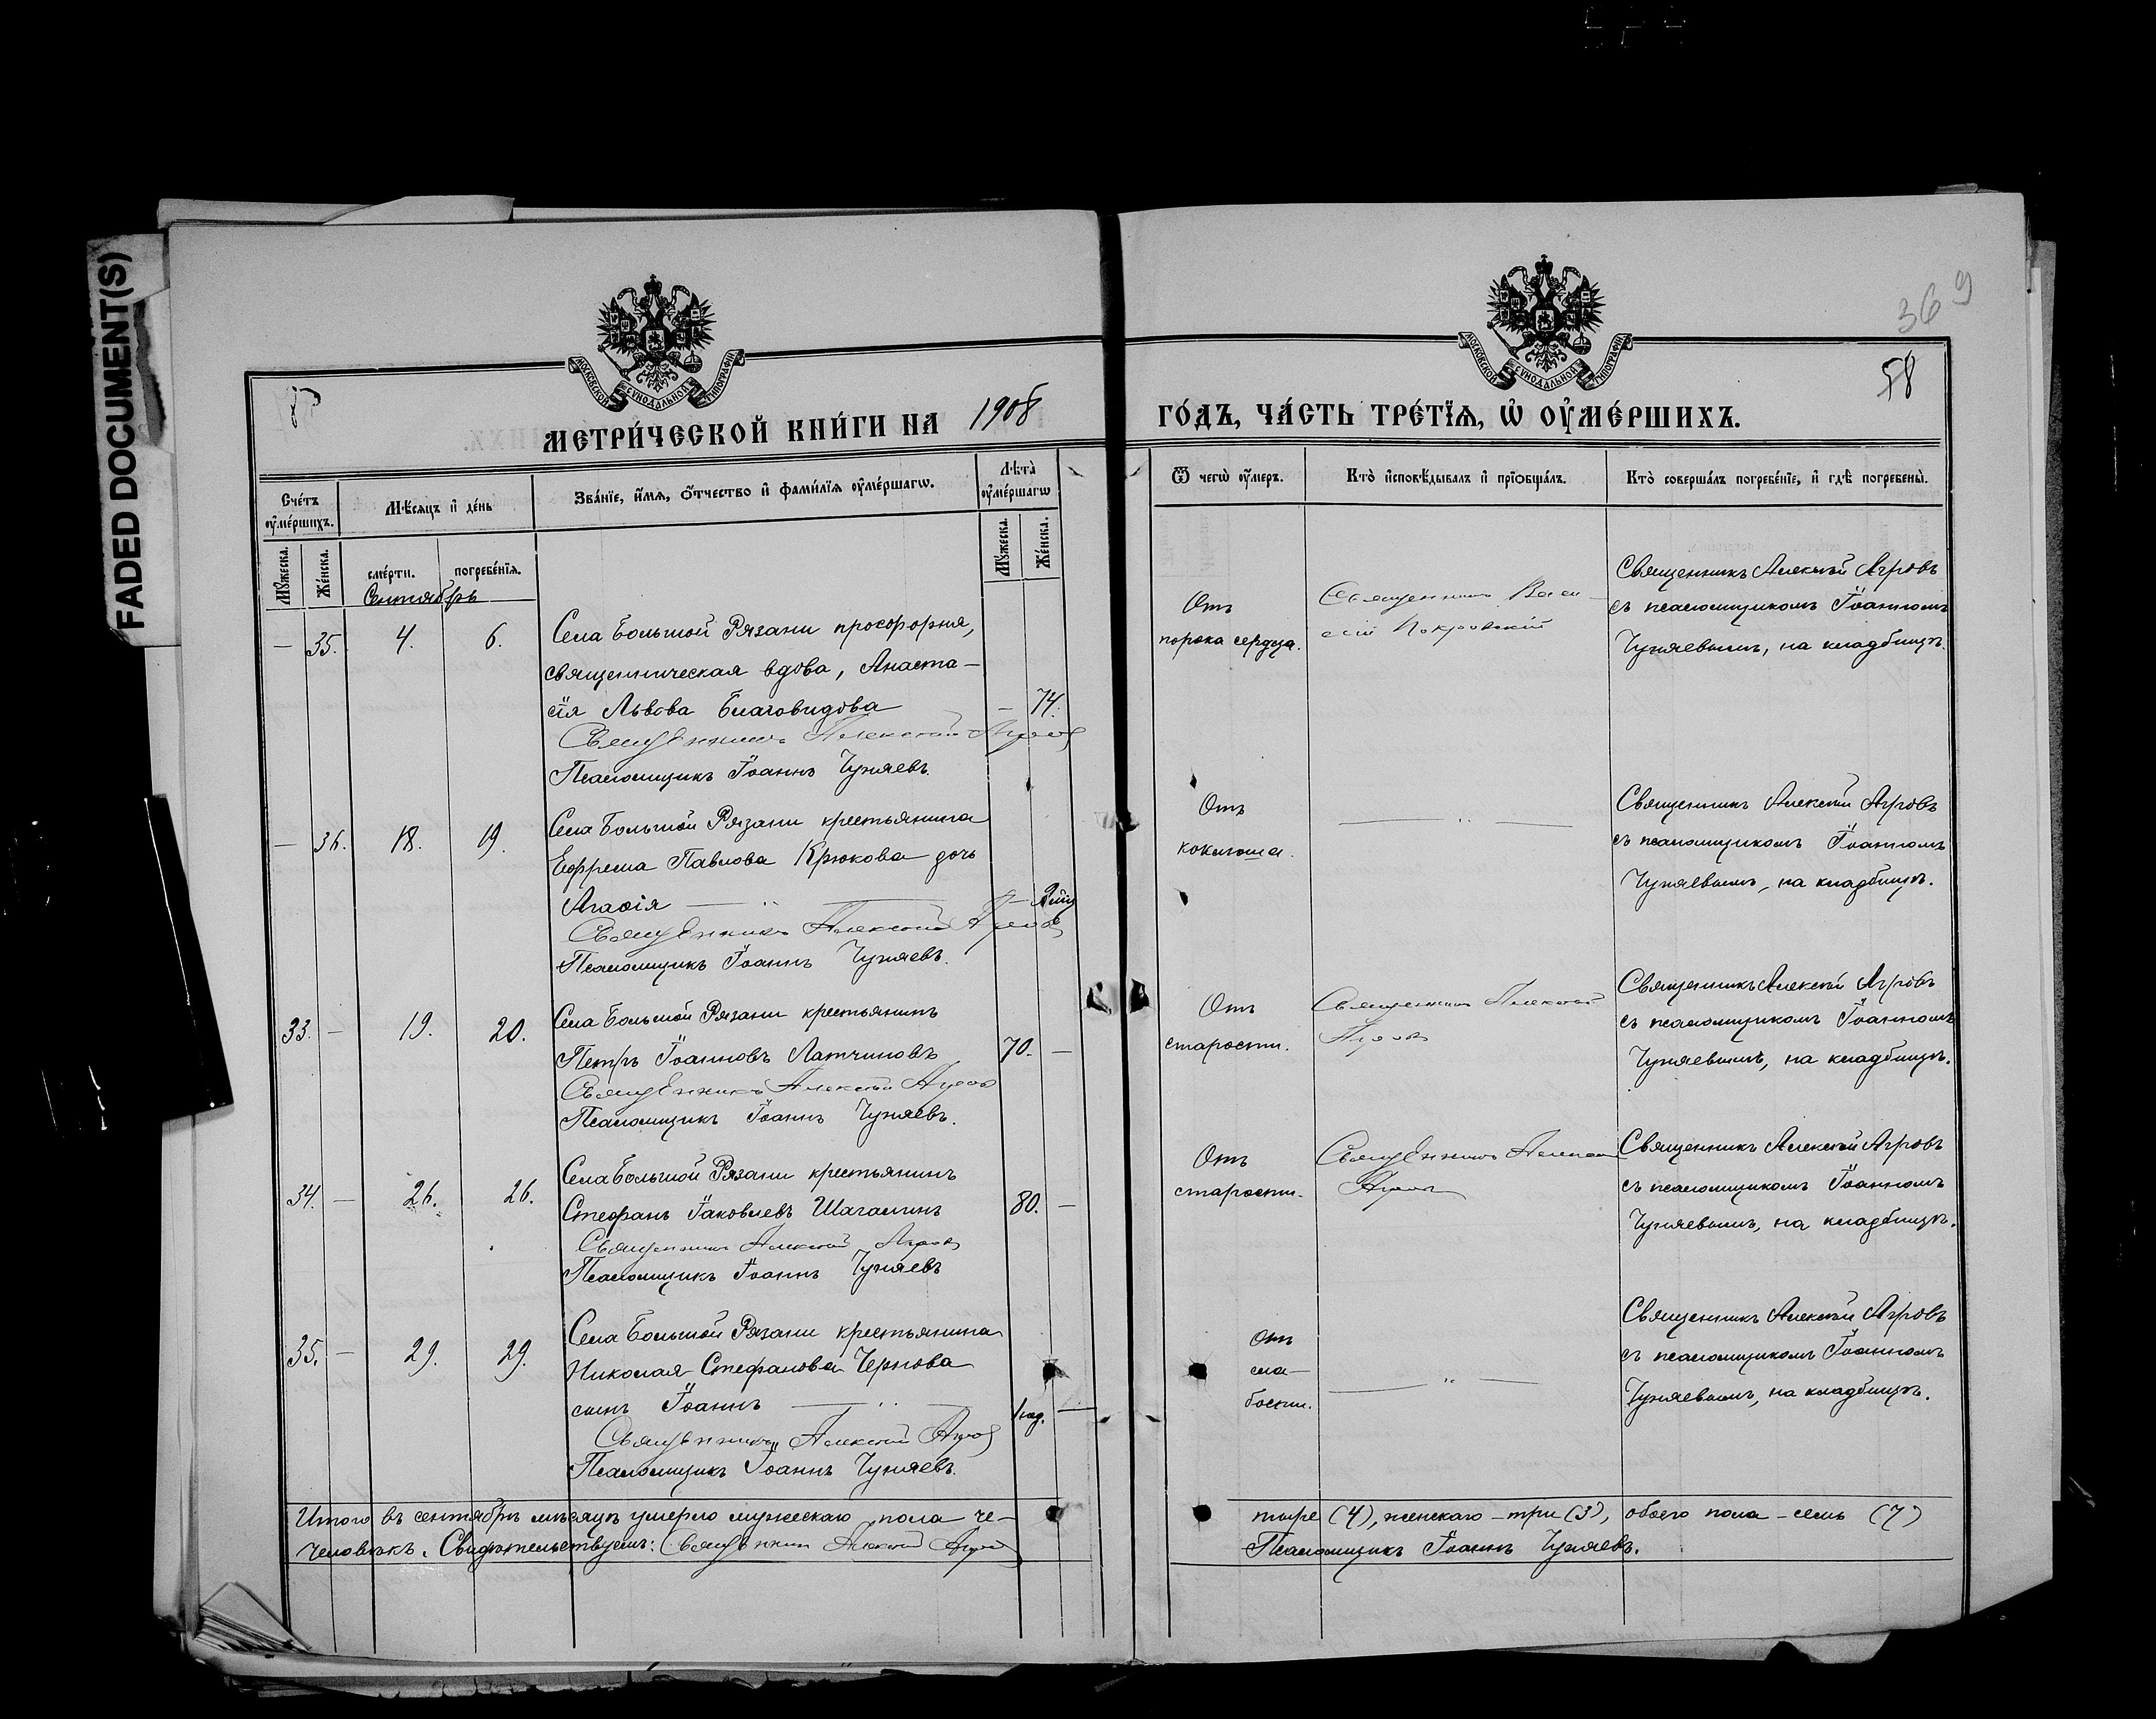 FADED DOCUMENT(S)
369
58
МОСКОВСКОЙ СѴНОДАЛЬНОЙ ТИПОГРАФІИ
МОСКОВСКОЙ СѴНОДАЛЬНОЙ ТИПОГРАФІИ
МЕТРИ́ЧЕСКОЙ КНИ́ГИ НА 1908 ГО́ДЪ, ЧА́СТЬ ТРЕ́ТЇѦ, Ѡ҆ ОУ҆МЕ́РШИХЪ.
Счетъ оу҆ме́ршихъ.
Мѣсѧцъ и҆ де́нь
Зва́нїе, и҆́мѧ, ѻ҆́тчество и҆ фами́лїѧ оу҆ме́ршагѡ.
Лѣта̀ оу҆ме́ршагѡ
Ѿ чегѡ̀ оу҆́меръ.
Кто̀ и҆сповѣ́дывалъ и҆ прїѡбща́лъ.
Кто̀ соверша́лъ погребе́нїе, и҆ гдѣ̀ погребены̀.
Мꙋ́жеска.
Же́нска.
сме́рти.
погребе́нїѧ.
Мꙋ́жеска.
Же́нска.
Сентябрь
— 35. 4. 6.
Села Большой Рязани просфорня,
священническая вдова, Анаста-
сія Львова Благовидова — 74.
Священникъ Алексѣй Агровъ
Псаломщикъ Іоаннъ Чуняевъ.
Отъ
порока сердца.
Священникъ Васи-
лій Покровскій
Священникъ Алексѣй Агровъ
съ псаломщикомъ Іоанномъ
Чуняевымъ, на кладбищѣ.
— 36. 18. 19.
Села Большой Рязани крестьянина
Ефрема Павлова Крюкова дочь
Агаѳія —
Священникъ Алексѣй Агровъ
Псаломщикъ Іоаннъ Чуняевъ.
Отъ
коклюша.
Священникъ Алексѣй Агровъ
съ псаломщикомъ Іоанномъ
Чуняевымъ, на кладбищѣ.
33. — 19. 20.
Села Большой Рязани крестьянинъ
Петръ Іоанновъ Латчиновъ 70. —
Священникъ Алексѣй Агровъ
Псаломщикъ Іоаннъ Чуняевъ.
Отъ
старости.
Священникъ Алексѣй
Агровъ
Священникъ Алексѣй Агровъ
съ псаломщикомъ Іоанномъ
Чуняевымъ, на кладбищѣ.
34. — 26. 26.
Села Большой Рязани крестьянинъ
Стефанъ Іаковлевъ Шагалинъ 80. —
Священникъ Алексѣй Агровъ
Псаломщикъ Іоаннъ Чуняевъ
Отъ
старости.
Священникъ Алексѣй
Агровъ
Священникъ Алексѣй Агровъ
съ псаломщикомъ Іоанномъ
Чуняевымъ, на кладбищѣ.
35. — 29. 29.
Села Большой Рязани крестьянина
Николая Стефанова Чернова
сынъ Іоаннъ — 1 год. —
Священникъ Алексѣй Агровъ
Псаломщикъ Іоаннъ Чуняевъ.
Отъ
сла-
бости.
Священникъ Алексѣй Агровъ
съ псаломщикомъ Іоанномъ
Чуняевымъ, на кладбищѣ.
Итого въ сентябрѣ мѣсяцѣ умерло мужескаго пола че-
тыре (4), женскаго - три (3), обоего пола - семь (7)
человѣкъ. Свидѣтельствуемъ: Священникъ Алексѣй Агровъ
Псаломщикъ Іоаннъ Чуняевъ.